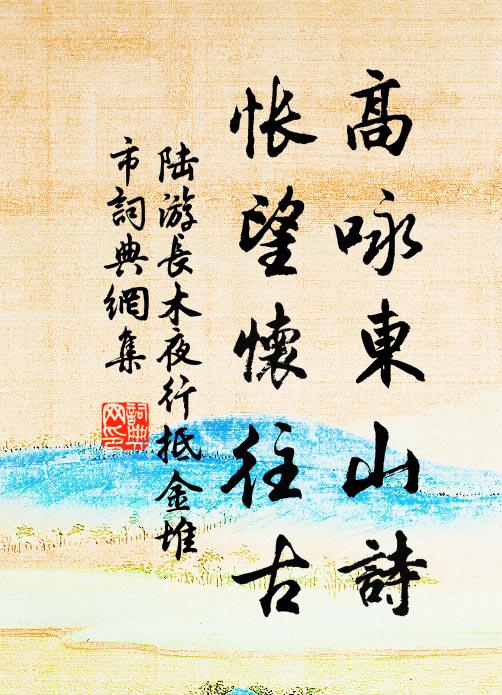 高咏東山詩
悵望懷往古
陸游長木夜行抵金堆
市詞典網集
詞典
网